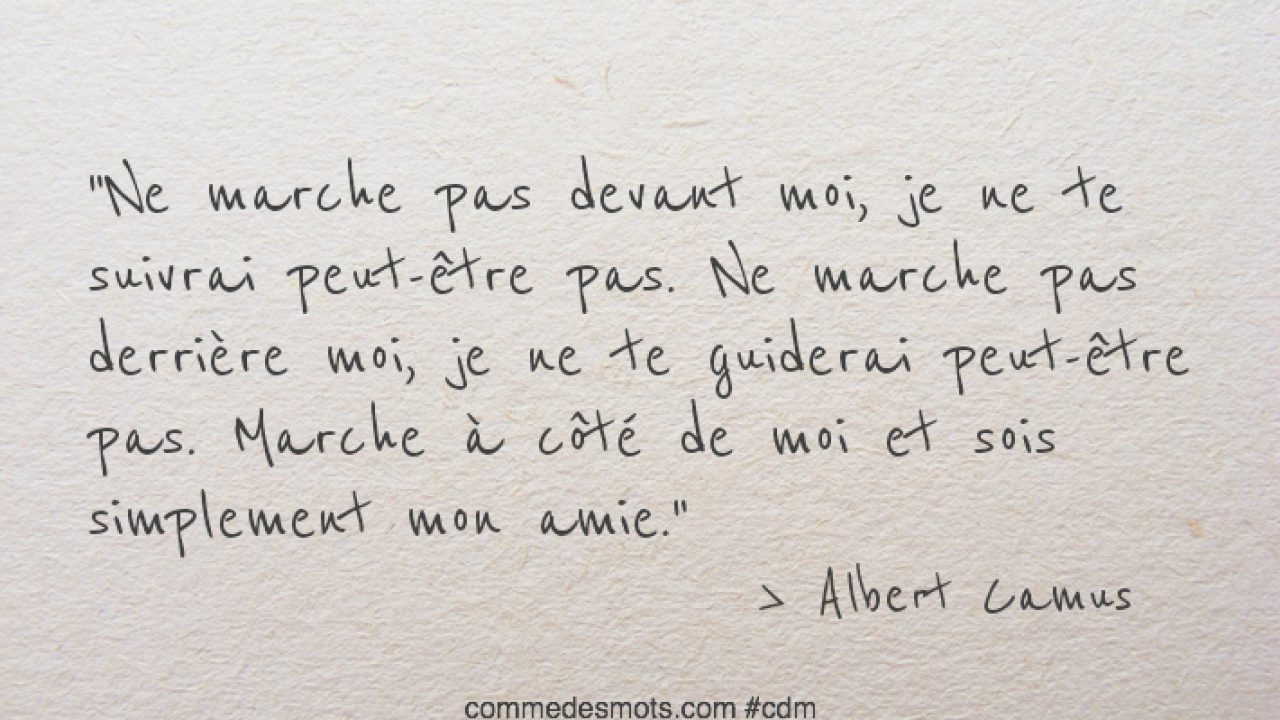 "Ne marche pas devant moi, je ne te
suivrai peut-être pas. Ne marche pas
derrière moi, je ne te guiderai peut-être
pas. Marche à côté de moi et sois
simplement mon amie."
> Albert Camus
commedesmots.com #cdm